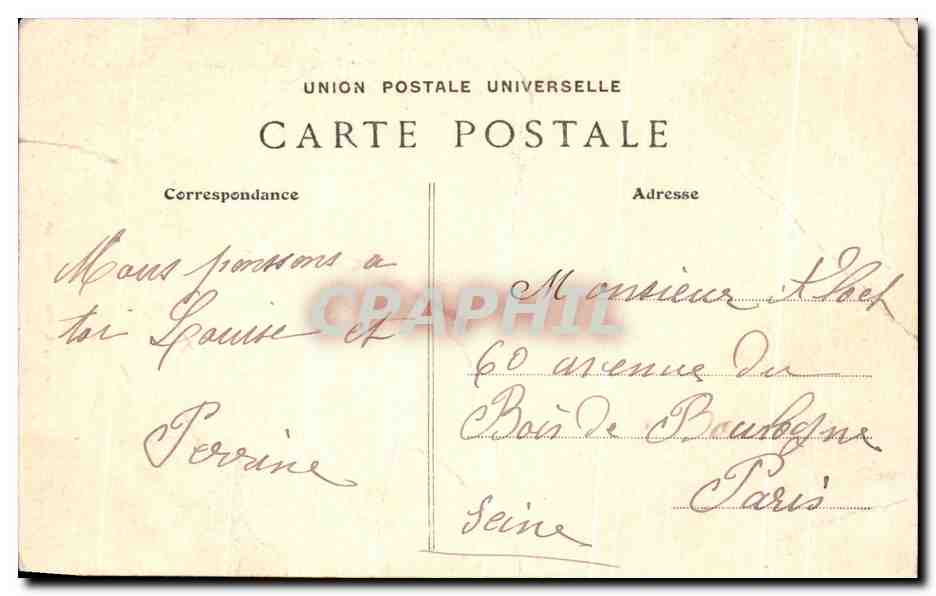 UNION POSTALE UNIVERSELLE
CARTE POSTALE
Correspondance
Adresse
Nous penssons a
toi Louise et
Perrine
Monsieur
60 avenue du
Bois de Boulogne
Paris
Seine
CPAPHIL